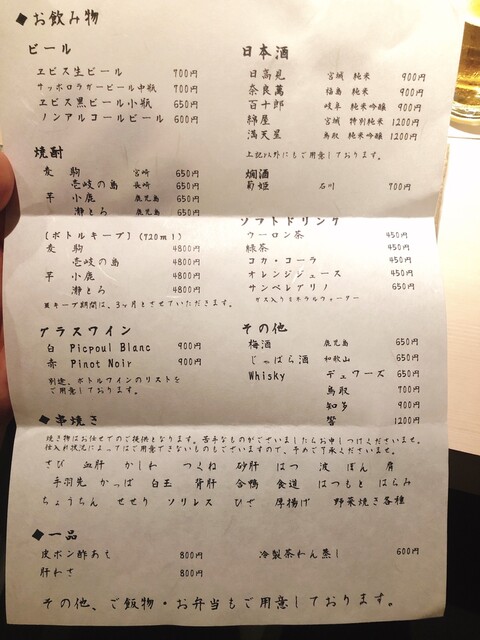 ◆お飲み物
ビール
ヱビス生ビール 700円
サッポロラガービール中瓶 700円
ヱビス黒ビール小瓶 650円
ノンアルコールビール 600円
焼酎
麦 駒 宮崎 650円
壱岐の島 長崎 650円
芋 小鹿 鹿児島 650円
瀞とろ 鹿児島 650円
〔ボトルキープ〕(720ml)
麦 駒 4800円
壱岐の島 4800円
芋 小鹿 4800円
瀞とろ 4800円
※キープ期間は、3ヶ月とさせていただきます。
グラスワイン
白 Picpoul Blanc 900円
赤 Pinot Noir 900円
別途、ボトルワインのリストを
ご用意しております。
日本酒
日高見 宮城 純米 900円
奈良萬 福島 純米 900円
百十郎 岐阜 純米吟醸 900円
綿屋 宮城 特別純米 1200円
満天星 鳥取 純米吟醸 1200円
上記以外にもご用意しております。
燗酒
菊姫 石川 700円
ソフトドリンク
ウーロン茶 450円
緑茶 450円
コカ・コーラ 450円
オレンジジュース 450円
サンペレグリノ 650円
ガス入りミネラルウォーター
その他
梅酒 鹿児島 650円
じゃばら酒 和歌山 650円
Whisky デュワーズ 650円
鳥取 700円
知多 900円
響 1200円
◆串焼き
焼き物はお任せでのご提供となります。苦手なものがございましたらお申しつけくださいませ。
仕入れ状況によってはご用意できないものもございますので、予めご了承くださいませ。
さび 血肝 かしわ つくね 砂肝 はつ 波 ぼん 肩
手羽先 かっぱ 白玉 背肝 合鴨 食道 はつもと はらみ
ちょうちん せせり ソリレス ひざ 厚揚げ 野菜焼き各種
◆一品
皮ポン酢あえ 800円
肝わさ 800円
冷製茶わん蒸し 600円
その他、ご飯物・お弁当もご用意しております。